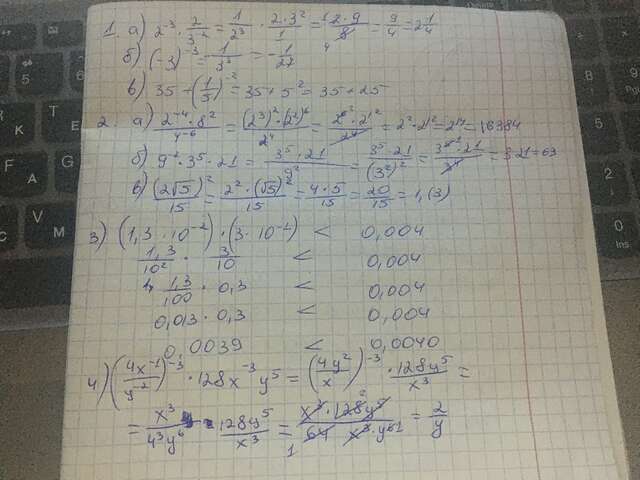 1. а) 2^-3 · 2/3^-2 = 1/2^3 · 2·3^2/1 = 2·9/8 = 9/4 = 2 1/4
б) (-3)^-3 = 1/3^3 = -1/27
в) 35 + (1/5)^-2 = 35 + 5^2 = 35 + 25
2. а) 2^-4 · 8^2/4^-6 = (2^3)^2 · (2^2)^6/2^4 = 2^6 · 2^12/2^4 = 2^2 · 2^12 = 2^14 = 16384
б) 9^-2 · 3^5 · 21 = 3^5 · 21/9^2 = 3^5 · 21/(3^2)^2 = 3^5 · 21/3^4 = 3·21 = 63
в) (2√5)^2/15 = 2^2 · (√5)^2/15 = 4·5/15 = 20/15 = 1,(3)
3) (1,3 · 10^-2) · (3 · 10^-1) < 0,004
1,3/10^2 · 3/10 < 0,004
1,3/100 · 0,3 < 0,004
0,013 · 0,3 < 0,004
0,0039 < 0,0040
4) (4x^-1/y^-2)^-3 · 128x^-3 y^5 = (4y^2/x)^-3 · 128y^5/x^3 =
= x^3/4^3y^6 · 128y^5/x^3 = x^3 · 128y^5/64 x^3 · y^6 = 2/y